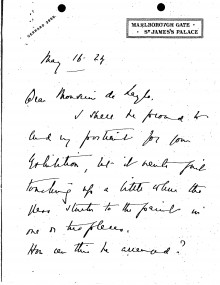 MARLBOROUGH GATE
ST JAMES'S PALACE
May 16. 24
Dear Monsieur de Laszlo.
I shall be proud to
lend my portrait for your
Exhibition, but it wants just
touching up a little where the
has started to the paint in
one or two places.
How can this be arranged?